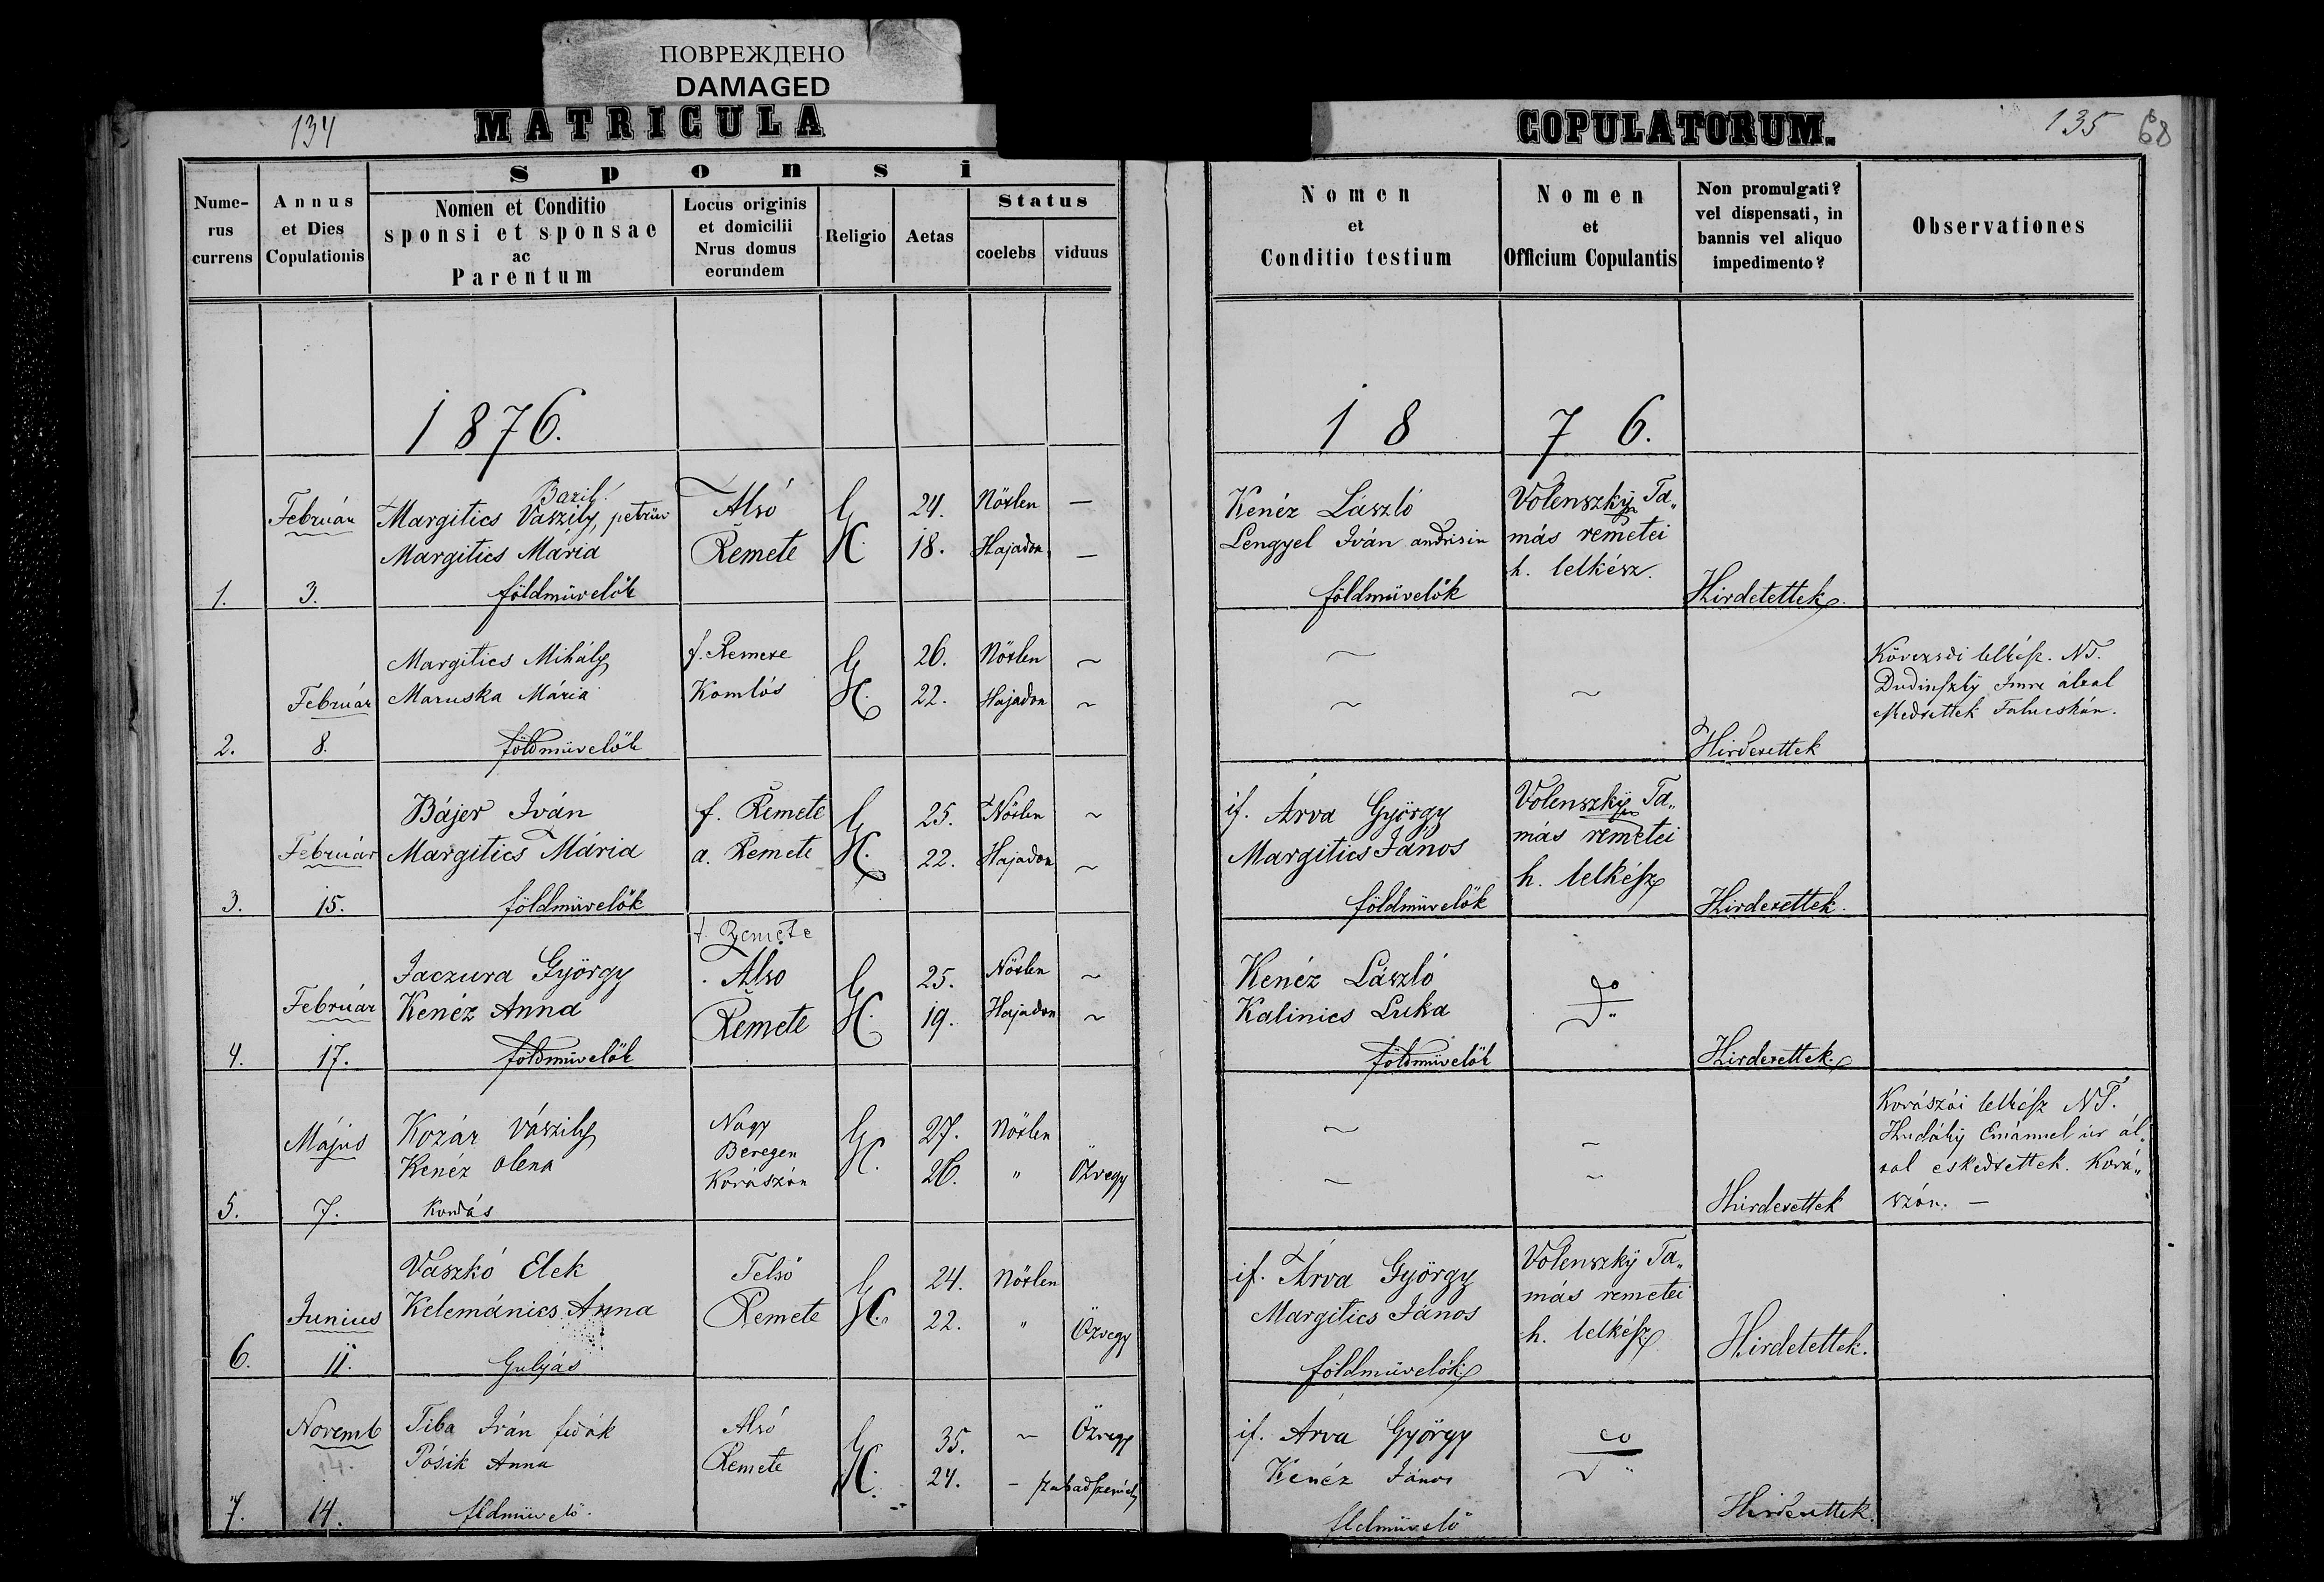 ПОВРЕЖДЕНО
DAMAGED
134
MATRICULA
Sponsi
Nume-
rus
currens
Annus
et Dies
Copulationis
Nomen et Conditio
sponsi et sponsae
ac
Parentum
Locus originis
et domicilii
Nrus domus
eorundem
Religio
Aetas
Status
coelebs
viduus
1876.
1.
Február
3.
Bazil
Margitics Vaszily, petrüv
Margitics Mária
földmüvelök
Alsó
Remete
G
K.
24.
18.
Nötlen —
Hajadon —
2.
Február
8.
Margitics Mihály
Maruska Mária
földmüvelök
f. Remete
Komlós
G
K.
26.
22.
Nötlen ~
Hajadon ~
3.
Február
15.
Bájer Iván
Margitics Mária
földmüvelök
f. Remete
a. Remete
G
K.
25.
22.
Nötlen ~
Hajadon ~
4.
Február
17.
Jaczura György
Kenéz Anna
földmüvelök
f. Remete
Alsó
Remete
G
K.
25.
19.
Nötlen ~
Hajadon ~
5.
Május
7.
Kozár Vászily
Kenéz Olena
Kondás
Nagy
Beregen
Kovászón
G
K.
27.
26.
Nötlen
" Özvegy
6.
Junius
11.
Vászkó Elek
Kelemánics Anna
Gulyás
Felsö
Remete
G
K.
24.
22.
Nötlen
" Özvegy
7.
Novemb
14.
14.
Tiba Iván fedák
Pósik Anna
fldmüvelö.
Alsó
Remete
G
K.
35.
24.
~ Özvegy
– szabadszemély
COPULATORUM.
135
68
Nomen
et
Conditio testium
Nomen
et
Officium Copulantis
Non promulgati?
vel dispensati, in
bannis vel aliquo
impedimento?
Observationes
1 8 7 6.
Kenéz László
Lengyel Iván andrisin
földmüvelök
Volenszky Ta„
más remetei
h. lelkész.
Hirdetettek.
~
~
~
Hirdetettek
Kövesdi lelkész. NT.
Dudinszky Imre által
eskedtettek Falucskán.
if. Árva György
Margitics János
földmüvelök
Volenszky Ta„
más remetei
h. lelkész
Hirdetettek.
Kenéz László
Kalinics Luka
földmüvelök
do
Hirdetettek.
~
~
~
~
Hirdetettek
Kovászói lelkész NT.
Emánuel úr ál„
tal eskedtettek. Ková„
szón. —
if. Árva György
Margitics János
földmüvelök
Volenszky Ta„
más remetei
h. lelkész
Hirdetettek.
if. Árva György
Kenéz János
fldmüvelö
Hirdetettek.